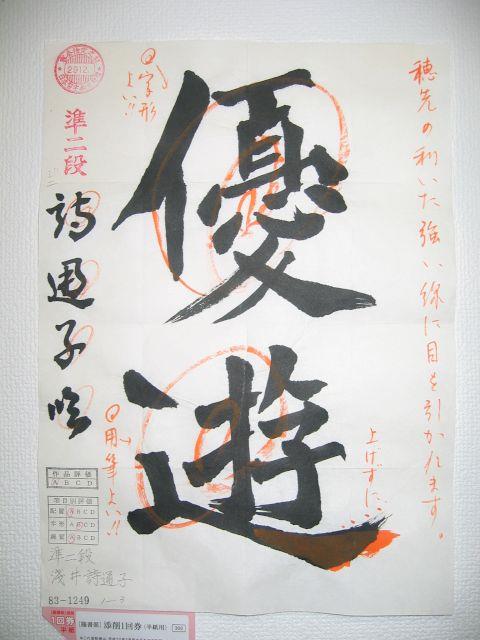 穂先の利いた強い線に目を引かれます。
優遊
字形
よい!!
用筆よい!!
上げずに…
準二段
作品評価
ABCD
項目別評価
配置 ABCD
字形 ABCD
線質 ABCD
準二段
浅井詩通子
83-1249
1回券
半紙
添削1回券(半紙用)